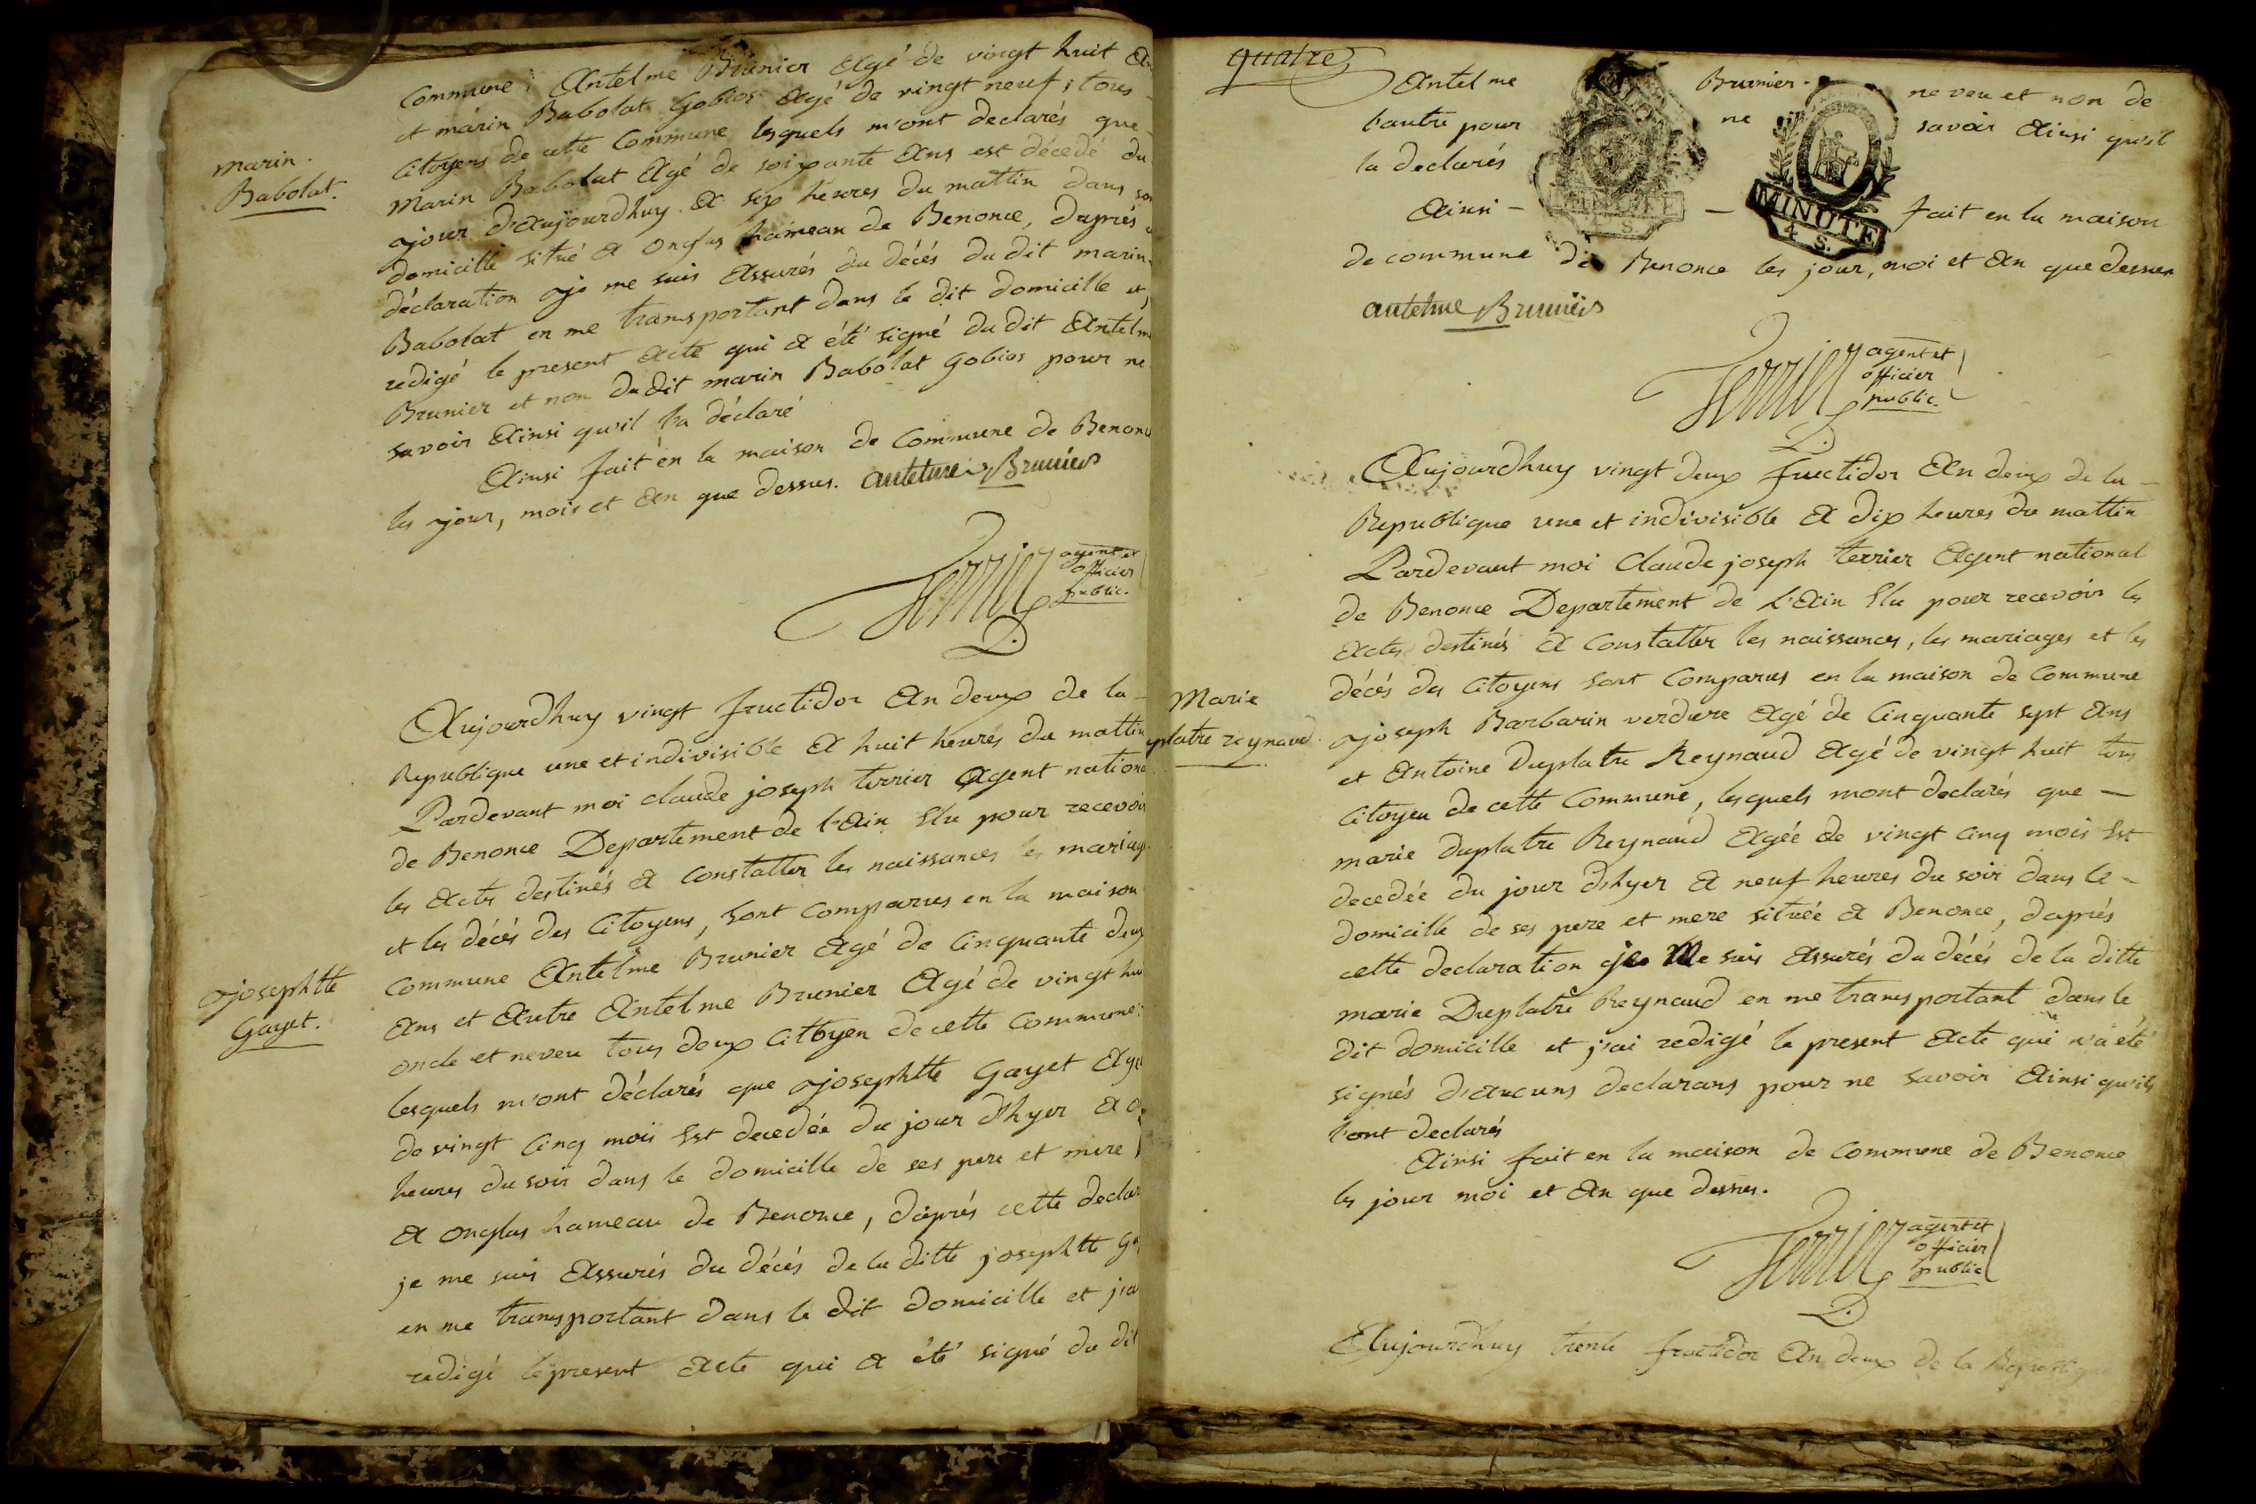 Commune, Antelme Brunier Agé de vingt huit An
et marin Babolat Gobios Agé de vingt neuf, tous
Citoyens de cette Commune lesquels m'ont declarés que
marin.
Babolat.
Marin Babolat Agé de soixante Ans est décedé du
jour d'Aujourdhuy A six heures du mattin dans son
domicille situé A Onglas hameau de Benonce, daprés
déclaration je me suis Assurés du décés du dit marin
Babolat en me transportant dans le dit domicille et
redigé le present Acte qui A été signé du dit Antelm
Brunier et non du dit marin Babolat Gobios pour ne
savoir Ainsi qu'il l'a déclaré
Ainsi fait en la maison de Commune de Benonce
les jour, mois et An que dessus. antelme Brunier
Terrier agent et
officier
public.
Aujourdhuy vingt fructidor An deux de la
Republique une et indivisible A huit heures du mattin
Pardevant moi claude joseph terrier Agent nationa
de Benonce Departement de l'Ain Elu pour recevoir
les Actes destinés A Constatter les naissances les mariag
et les décés des Citoyens, sont comparus en la maison
commune Antelme Brunier Agé de Cinquante deux
josephtte
Gayet.
Ans et Autre Antelme Brunier Agé de vingt hui
oncle et neveu tous deux Citoyen de cette Commune
lesquels m'ont déclarés que josephtte Gayet Agé
de vingt Cinq mois Est decedée du jour d'hyer A
heures du soir dans le domicille de ses pere et mere
A onglas hameau de Benonce, d'aprés cette declar
je me suis Assurés du décés de la ditte josephtte Ga
en me transportant dans le dit domicille et j'ai
redigé le present Acte qui A été signé du dit
quatre
Antelme Brunier neveu et non de
l'autre pour ne savoir Ainsi qu'il
la declarés
Ainsi fait en la maison
MINUTE
4 S.
de commune de Benonce les jour, moi et An que dessus
antelme Brunier
Terrier agent et
officier
public.
Aujourdhuy vingt deux fructidor An deux de la
Republique une et indivisible A dix heures du mattin
Pardevant moi Claude joseph terrier Agent national
de Benonce Departement de L'Ain Elu pour recevoir les
Actes destinés A Constatter les naissances, les mariages et les
décés des Citoyens sont Comparus en la maison de Commune
Marie
platre reynaud.
joseph Barbarin verdure Agé de Cinquante sept Ans
et Antoine Duplatre Reynaud Agé de vingt huit tous
Citoyen de cette Commune, lesquels mont declarés que
marie duplatre Reynaud Agée de vingt Cinq mois Est
decedée du jour d'hyer A neuf heures du soir dans le
domicille de ses pere et mere située A Benonce, daprés
cette declaration je Me suis Assurés du décés de la ditte
marie Duplatre Reynaud en me transportant dans le
dit domicille et j'ai redigé le present Acte qui n'a été
signés d'Aucuns declarans pour ne savoir Ainsi qu'ils
l'ont declarés
Ainsi fait en la maison de Commune de Benonce
les jour moi et An que dessus.
Terrier agent et
officier
public
Aujourdhuy trente fructidor An deux de la Republique